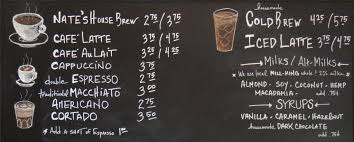 Nate's House Brew 2.75/3.75
Café Latte 3.75/4.75
Café Au Lait 3.25/4.25
Cappuccino 3.75
double Espresso 2.75
traditional Macchiato 3.00
Americano 2.75
Cortado 3.50
* Add a shot of Espresso 1.00
housemade
Cold Brew 4.25/5.75
Iced Latte 3.75/4.75
Milks/Alt-Milks
* We use local Mill-King whole & 2% milks *
Almond - Soy - Coconut - Hemp
Macadamia - add .75¢
Syrups
Vanilla - Caramel - Hazelnut
housemade Dark Chocolate
add .75¢